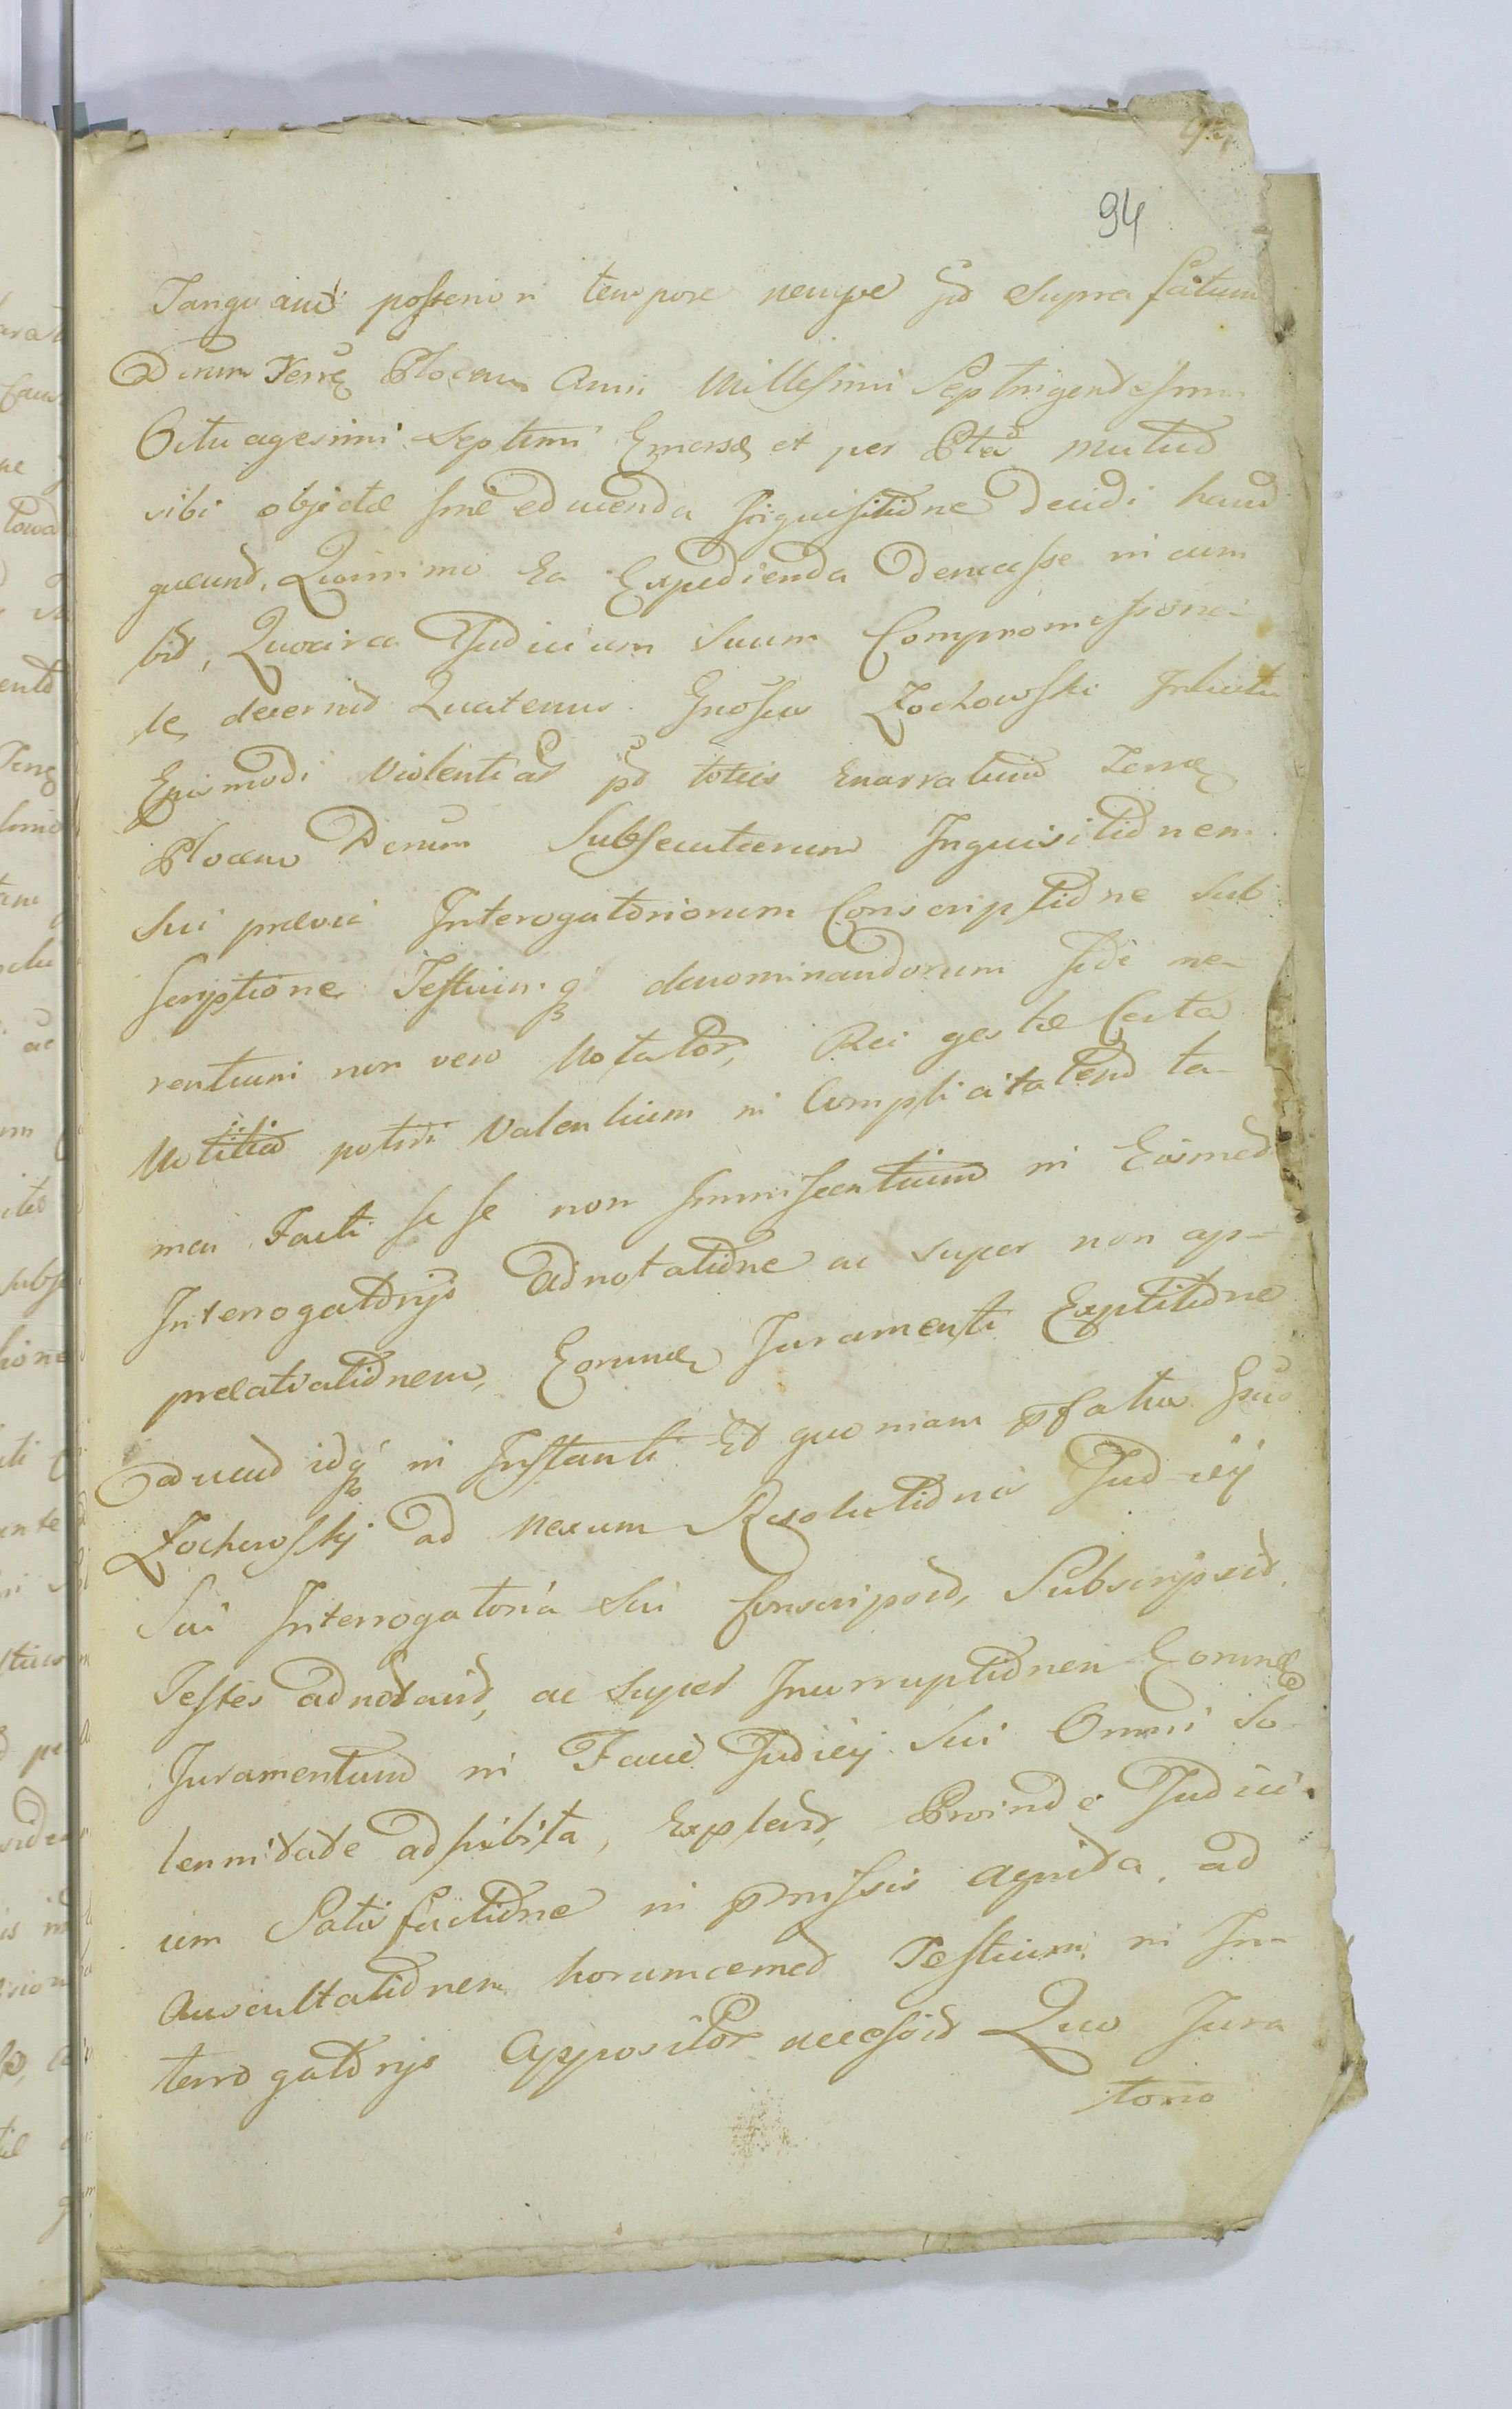 94
Tanquam posteriori tempore nempe supra fatum
Terræ Plocen Anni Millesimi Septingentesimi
Octuagesimi Septimi Emersæ et per Ptes mutuo
sibi objectæ sine educenda Inquisitione decidi haud
queunt, Quinimo Ea Expedienda venisse in cum
bit, Quocirca Judicium Suum Compromissoria-
le, decernit Quatenus Gnosus Zochowski Intuitu
Ejusmodi Violentiæ toties enarratum Terræ
Plocen Subsecutarum Inquisitionem
Sui prævia Interogatoriorum Conscriptione Sub
scriptione Testiumq denominandorum fide me-
rentium non vero Notator, Rei gestæ Certa
Notitia potiri Valentium in Complicitatem ta-
men Facti se se non Immiscentium in Eismed
Interrogatorijs adnotatione ac super non ap-
preciationem, Eorumd Juramenti Expletione
educat idq in Instanti Et quoniam pfatus Gnosus
Zochowskj ad nexum Resolutionis Judicij
Sui Interrogatoria Sui Conscripsit, Subscripsit,
Testes adnotavit, ac super Incorruptionem Eorumd
Juramentum in Facie Judicij Sui Omni So-
lennitate adhibita, Explevit, Proinde Judici-
um Satisfactione in Pmissis agnita, ad
Auscultationem horumcemed Testium in In-
terrogatorijs Appositor accessit Quo Jura
torio